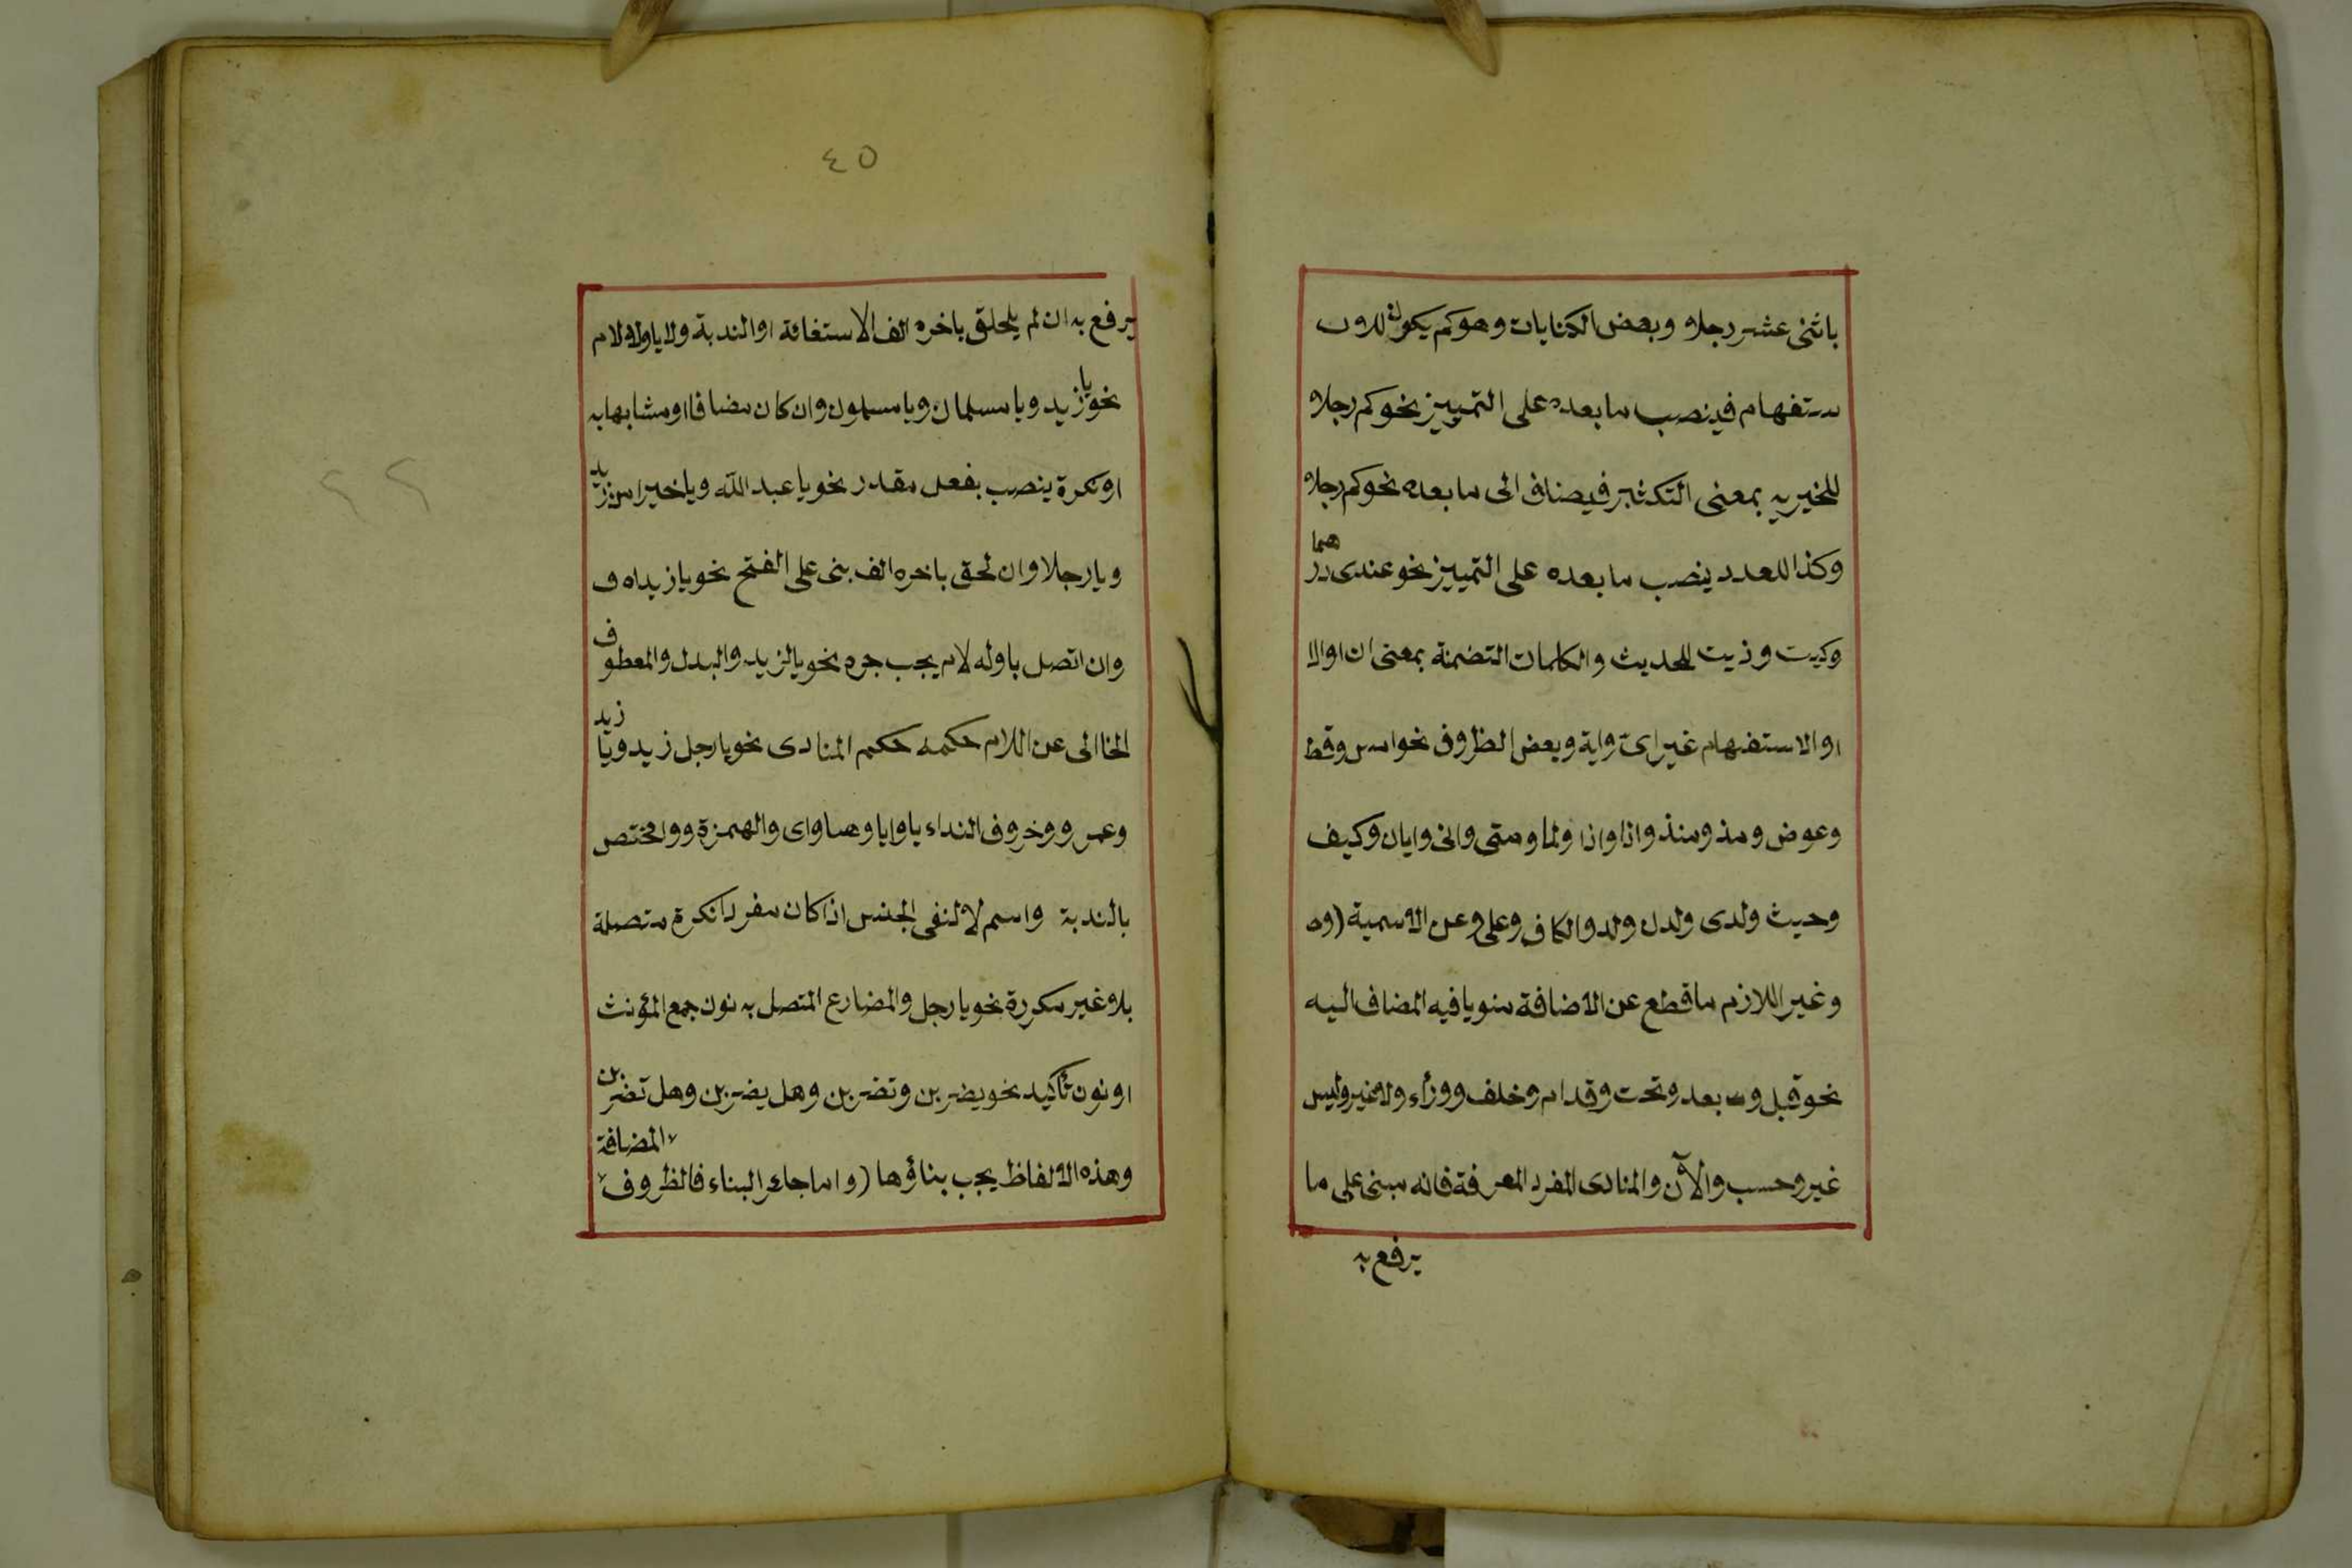 باثنى عشر رجلا وبعض الكنايات وهو كم يكون للاو
ستفهام فينصب ما بعده على التمييز نحو كم رجلا و
للخبرية بمعنى التكثير فيضاف الى ما بعده نحو كم رجلا
وكذا للعدد ينصب ما بعده على التمييز نحو عندى درهما
وكيت وذيت للحديث والكلمات التضمنة بمعنى ان اوالا
اوالاستفهام غير اى واية وبعض الظروف نحو امس وقط
وعوض ومذ ومنذ واذا واذا ولما ومتى وانى وايان وكيف
وحيث ولدى ولدن ولد والكاف وعلى وعن الاسمية (وه
وغير اللازم ما قطع عن الاضافة منويا فيه المضاف اليه
نحو قبل وبعد وتحت وقدام وخلف ووراء ولاغير وليس
غير وحسب والآن والمنادى المفرد المعرفة فانه مبنى على ما
يرفع به
٤٥
يرفع به ان لم يلحلق باخره الف الاستغاثة اوالندبة ولا ياوله لام
نحو يا زيد ويا مسلمان ويا مسلمون وان كان مضافا اومشابها به
اونكرة ينصب بفعل مقدر نحو يا عبد الله ويا خيرا من زيد
ويا رجلا وان لحق باخره الف بنى على الفتح نحو يا زيداه ف
وان اتصل باوله لام يجب جره نحو يا لزيد والبدل والمعطوف
الخاالى عن اللام حكمه حكم المنادى نحو يا رجل زيد ويا زيد
وعمرو وخروف النداء يا وايا وهيا واى والهمزة ووا مختص
بالندبة واسم لا لنفى الجنس اذا كان مفردا نكرة متصلة
بلا وغير مكررة نحو يا رجل والمضارع المتصل به نون جمع المؤنث
اونون تأكيد نحو يضربن وتضربن وهل يضربن وهل تضربن
وهذه الالفاظ يجب بناؤها (واما جائز البناء فالظروف المضافة
٢٢